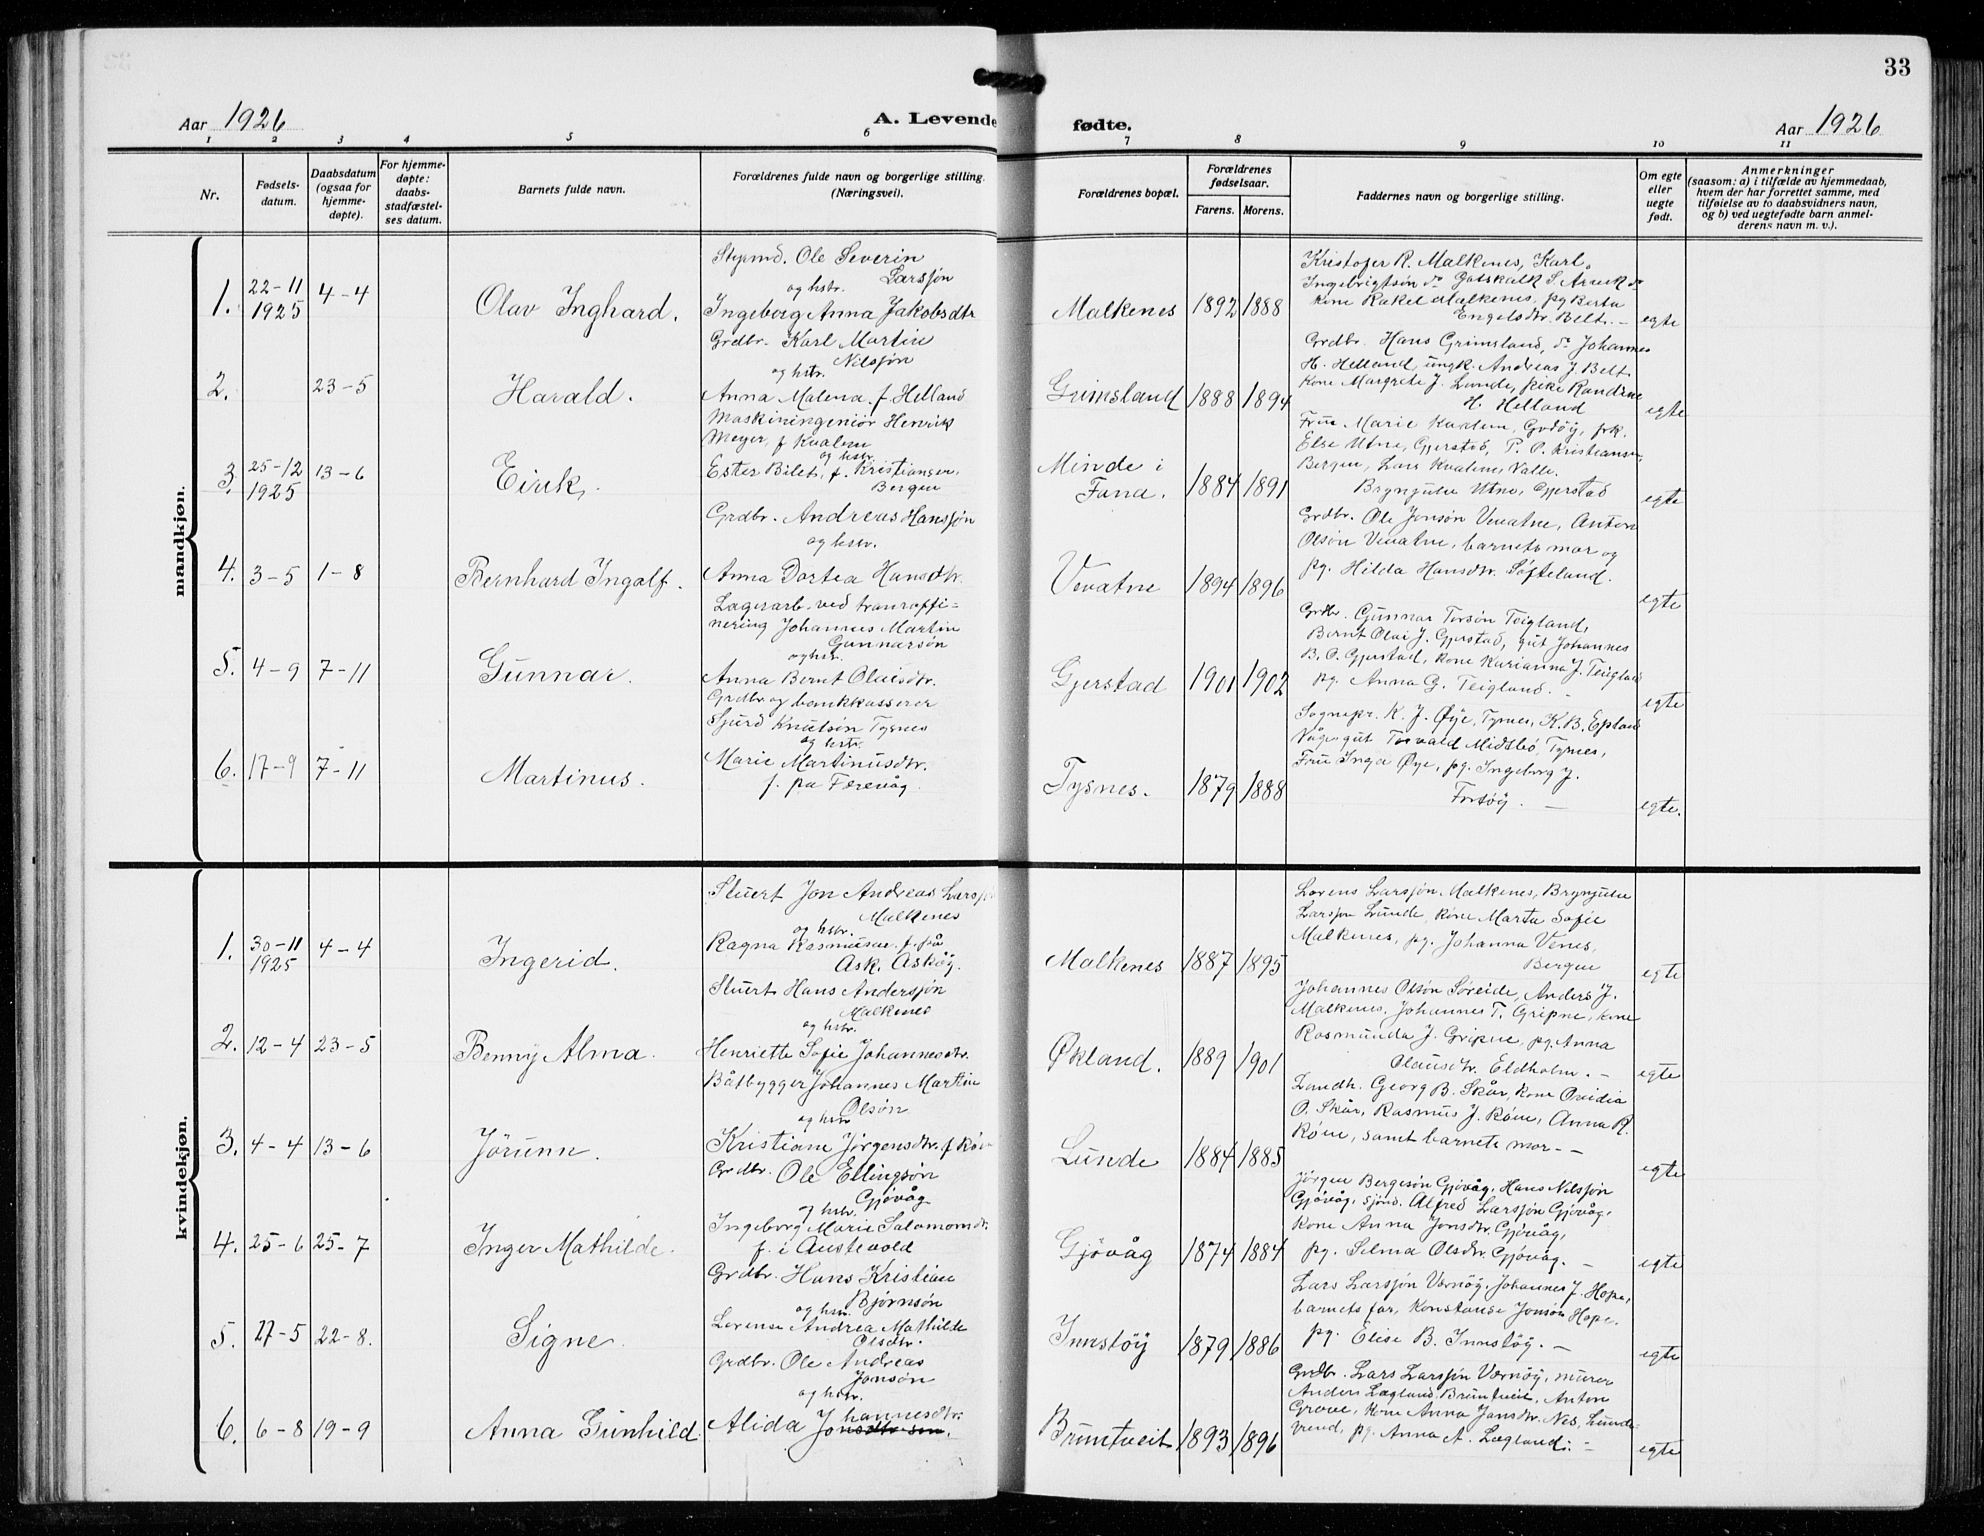 33
Aar 1926
A. Levende fødte.
Aar 1926
1 2 3 4 5 6 7 8 9 10 11
Nr.
Fødsels-
datum.
Daabsdatum
(ogsaa for
hjemme-
døpte).
For hjemme-
døpte:
daabs-
stadfæstel-
ses datum.
Barnets fulde navn.
Forældrenes fulde navn og borgerlige stilling.
(Næringsvei).
Forældrenes bopæl.
Forældrenes
fødselsaar.
Farens. Morens.
Faddernes navn og borgerlige stilling.
Om egte
eller
uegte
født.
Anmerkninger
(saasom: a) i tilfælde av hjemmedaab,
hvem der har forrettet samme, med
tilføielse av to daabsvidners navn,
og b) ved uegtefødte barn anmel-
derens navn m. v.).
mandkjøn.
1.
22-11
1925
4-4
Olav Inghard.
Styrmd. Ole Severin
Larssøn
og hstr.
Ingeborg Anna Jakobsdtr
Malkenes
1892 1888
Kristofer R. Malkenes, Karl
Ingebrigtsøn do Gotskalk S.
kone Rakel Malkenes, pg Berta
Engelsdtr. Belt. -
egte
2.
23-5
Harald.
Grdbr. Karl Martin
Nilssøn
og hstr.
Anna Malena f Helland
Grimsland
1888 1894
Grdbr. Hans Grimsland, do Johannes
H. Helland, ungk. Andreas J. Belt
kone Margrete J. Lunde, pike Randine
H. Helland
egte
3.
25-12
1925
13-6
Eirik.
Maskiningeniør Henrik
Meyer, f Kvalem
og hstr.
Ester Bilet, f. Kristiansen,
Bergen
Minde i
Fana.
1884 1891
Frue Marie Godøy, frk.
Else Utne, Gjerstad, P. O. Kristiansen,
Bergen, Lars Kvalem, Valle.
Bryngulv Utne, Gjerstad
egte
4.
3-5
1-8
Bernhard Ingolf.
Grdbr. Andreas Hanssøn
og hstr.
Anna Dortea Hansdtr.
Vevatne
1894 1896
Grdbr. Ole Jonsøn Vevatne, Anton
Olsøn Vevatne, barnets mor og
pg. Hilda Hansdtr. Søfteland.
egte
5.
4-9
7-11
Gunnar.
Lagerarb. ved tranraffi-
nering Johannes Martin
Gunnarsøn
og hstr.
Anna Bernt Olaisdtr.
Gjerstad
1901 1902
Grdbr. Gunnar Torsøn Teigland,
Bernt Olai J. Gjerstad, gut Johannes
B. O. Gjerstad, kone Karianna J. Teigland
pg. Anna G. Teigland. -
egte
6.
17-9
7-11
Martinus.
Grdbr og bankkasserer
Sjurd Knutsøn Tysnes
og hstr.
Marie Martinusdtr.
f. på Færevåg.
Tysnes.
1879 1888
Sognepr. K. J. Øye, Tysnes, K. B. Epland
Våge, gut Torvald Midtbø, Tysnes,
Fru Inga Øye, pg. Ingeborg J.
Forsøy. -
egte.
kvindekjøn.
1.
30-11
1925
4-4
Ingerid.
Stuert Jon Andreas Larssøn
Malkenes
og hstr.
Ragna Rasmusen f. på
Ask, Askøy.
Malkenes
1887 1895
Lorens Larssøn, Malkenes, Bryngulv
Larssøn Lunde, kone Marta Sofie
Malkenes, pg. Johanna Venes,
Bergen
egte
2.
12-4
23-5
Benny Alma.
Stuert Hans Anderssøn
Malkenes
og hstr.
Henriette Sofie Johannesdtr.
Økland.
1889 1901
Johannes Olsøn Søreide, Anders J.
Malkenes, Johannes T. Gripne, kone
Rasmunda J. Gripne, pg. Anna
Olausdtr. Eldholm. -
egte
3.
4-4
13-6
Jörunn.
Båtbygger Johannes Martin
Olsøn
og hstr
Kristiane Jørgensdtr. f
Lunde
1884 1885
Landh. Georg B. Skår, kone Ovidia
O. Skår, Rasmus J. Røen, Anna R.
Røen, samt barnets mor.--
egte
4.
25-6
25-7
Inger Mathilde.
Grdbr. Ole Ellingsøn
Gjøvåg
og hstr.
Ingeborg Marie Salamonsdtr.
f. i Austevold
Gjøvåg
1874 1884
Jørgen Bergesøn Gjøvåg, Hans Nilssøn
Gjøvåg, sjømd. Alfred Larssøn Gjøvåg,
kone Anna Jonsdtr. Gjøvåg,
pg. Selma Olsdtr. Gjøvåg. -
egte
5.
27-5
22-8.
Signe.
Grdbr. Hans Kristian
Bjørnsøn
og hstr.
Lovense Andrea Mathilde
Olsdtr.
Innstöy
1879 1886
Lars Larssøn Vernøy, Johannes J. Hope,
barnets far, Konstanse Jonsøn Hope,
pg. Elise B. Innstöy. -
egte
6.
6-8
19-9
Anna Gunhild
Grdbr. Ole Andreas
Jonsøn
og hstr.
Alida Johannesdtr.
Bruntveit
1893 1896
Grdbr. Lars Larssøn Vernøy, murer
Anders Lægland, Bruntveit, Anton
Grove, kone Anna Jansdtr. Nes, Lunde-
vend, pg. Anna A. Lægland. -
egte